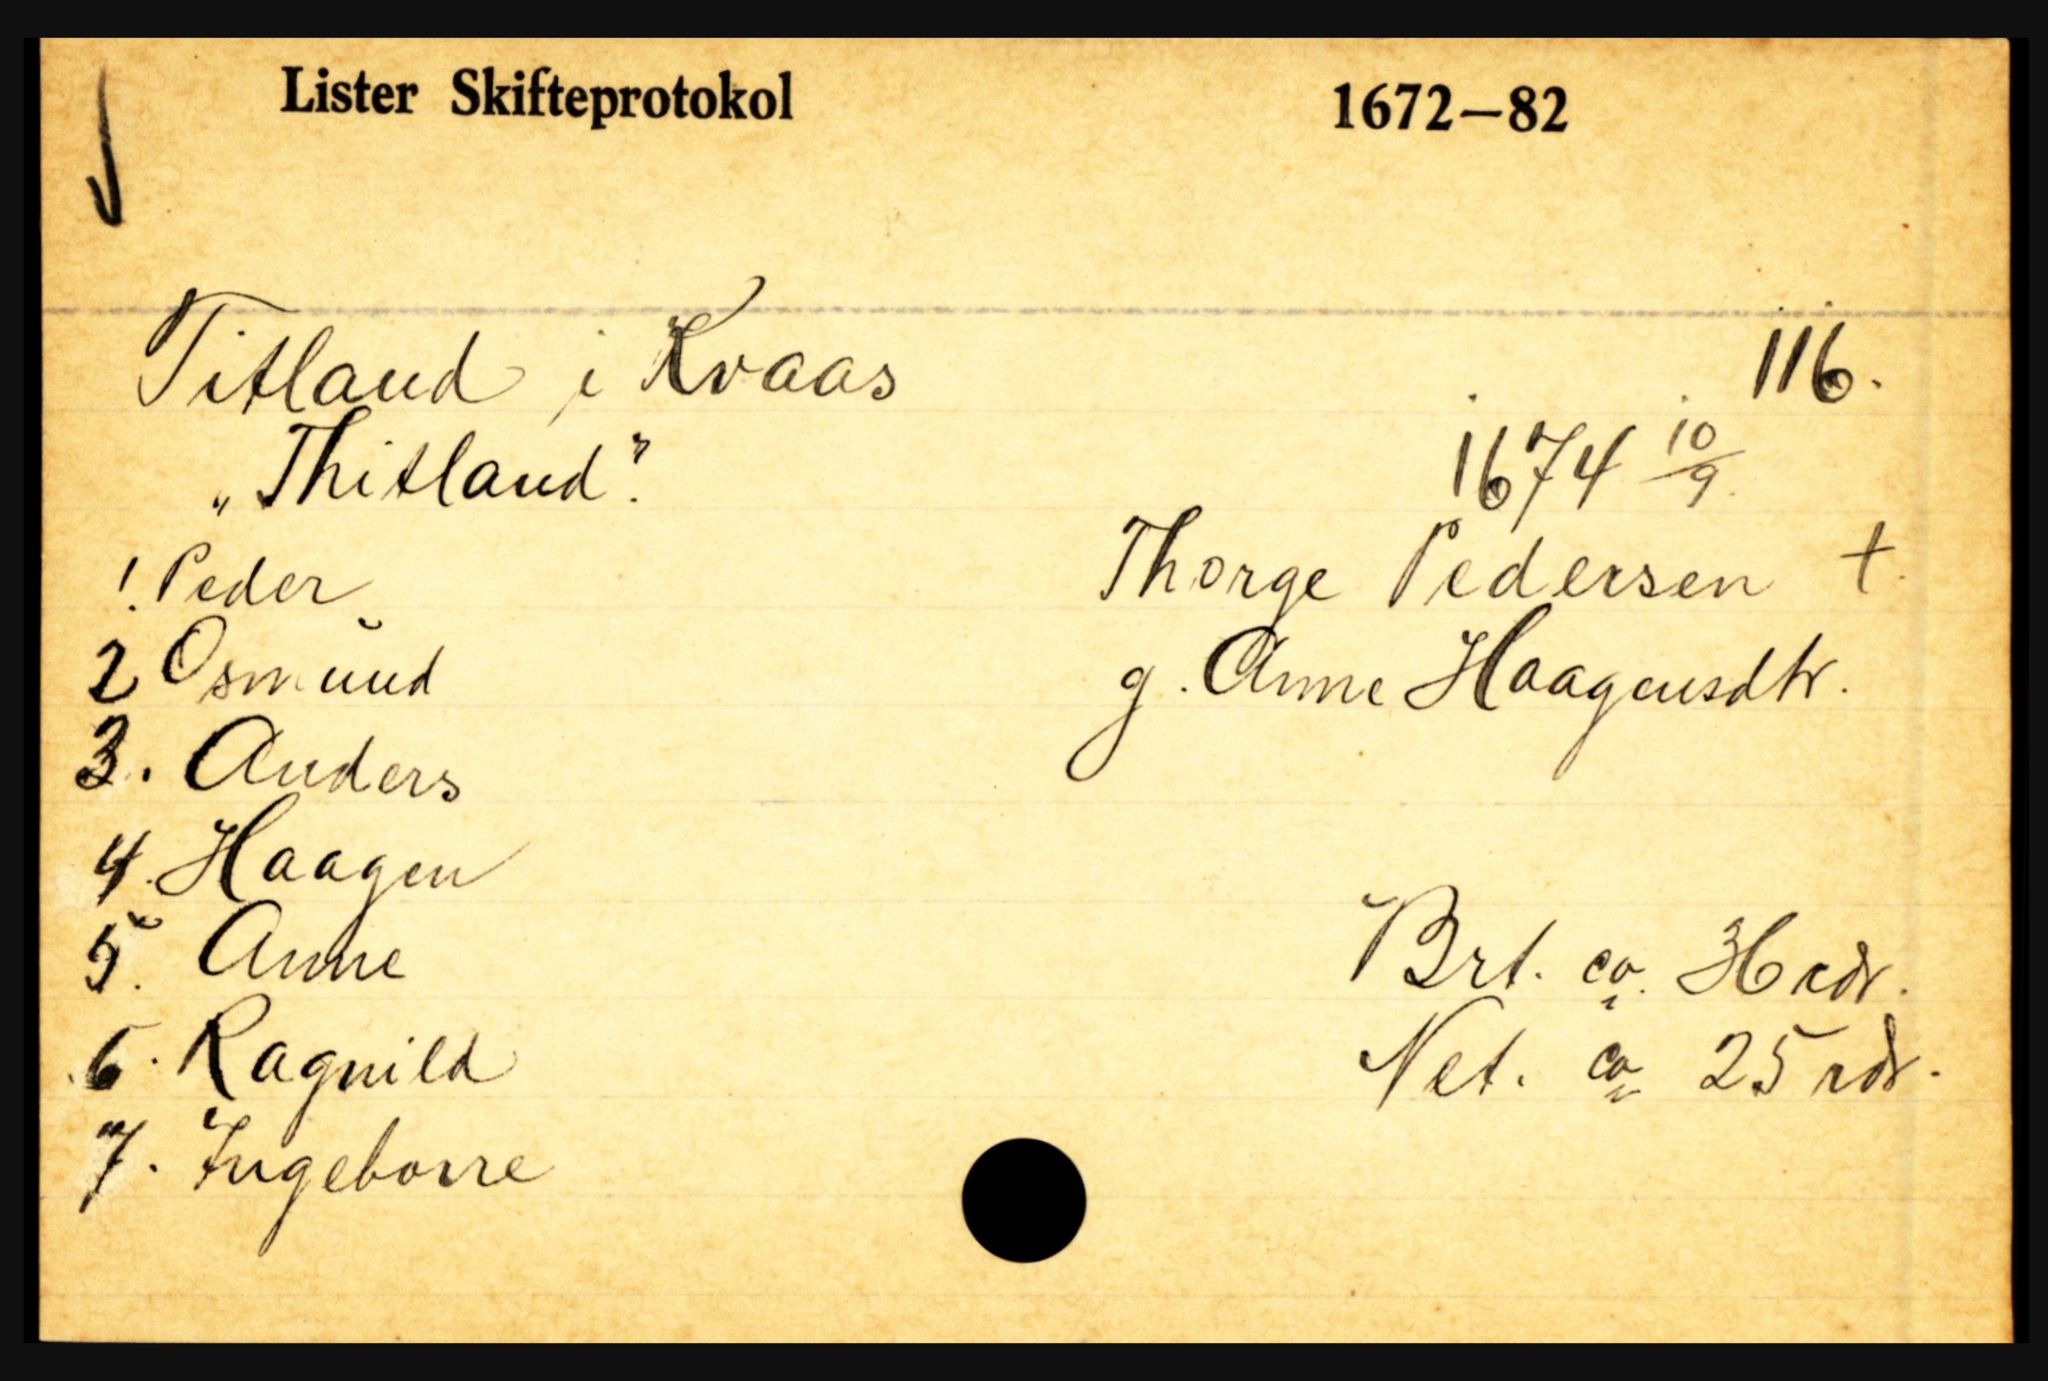 Lister Skifteprotokol 1672–82
Titland i Kvaas 116.
„Thitland”. 1674 10/9.
1. Peder Thorge Pedersen †.
2 Osmund g. Anne Haagensdtr.
3. Anders
4. Haagen
5. Anne Brt. ca. 36 rdr.
6. Ragnild Net. ca 25 rdr.
7. Ingeborre